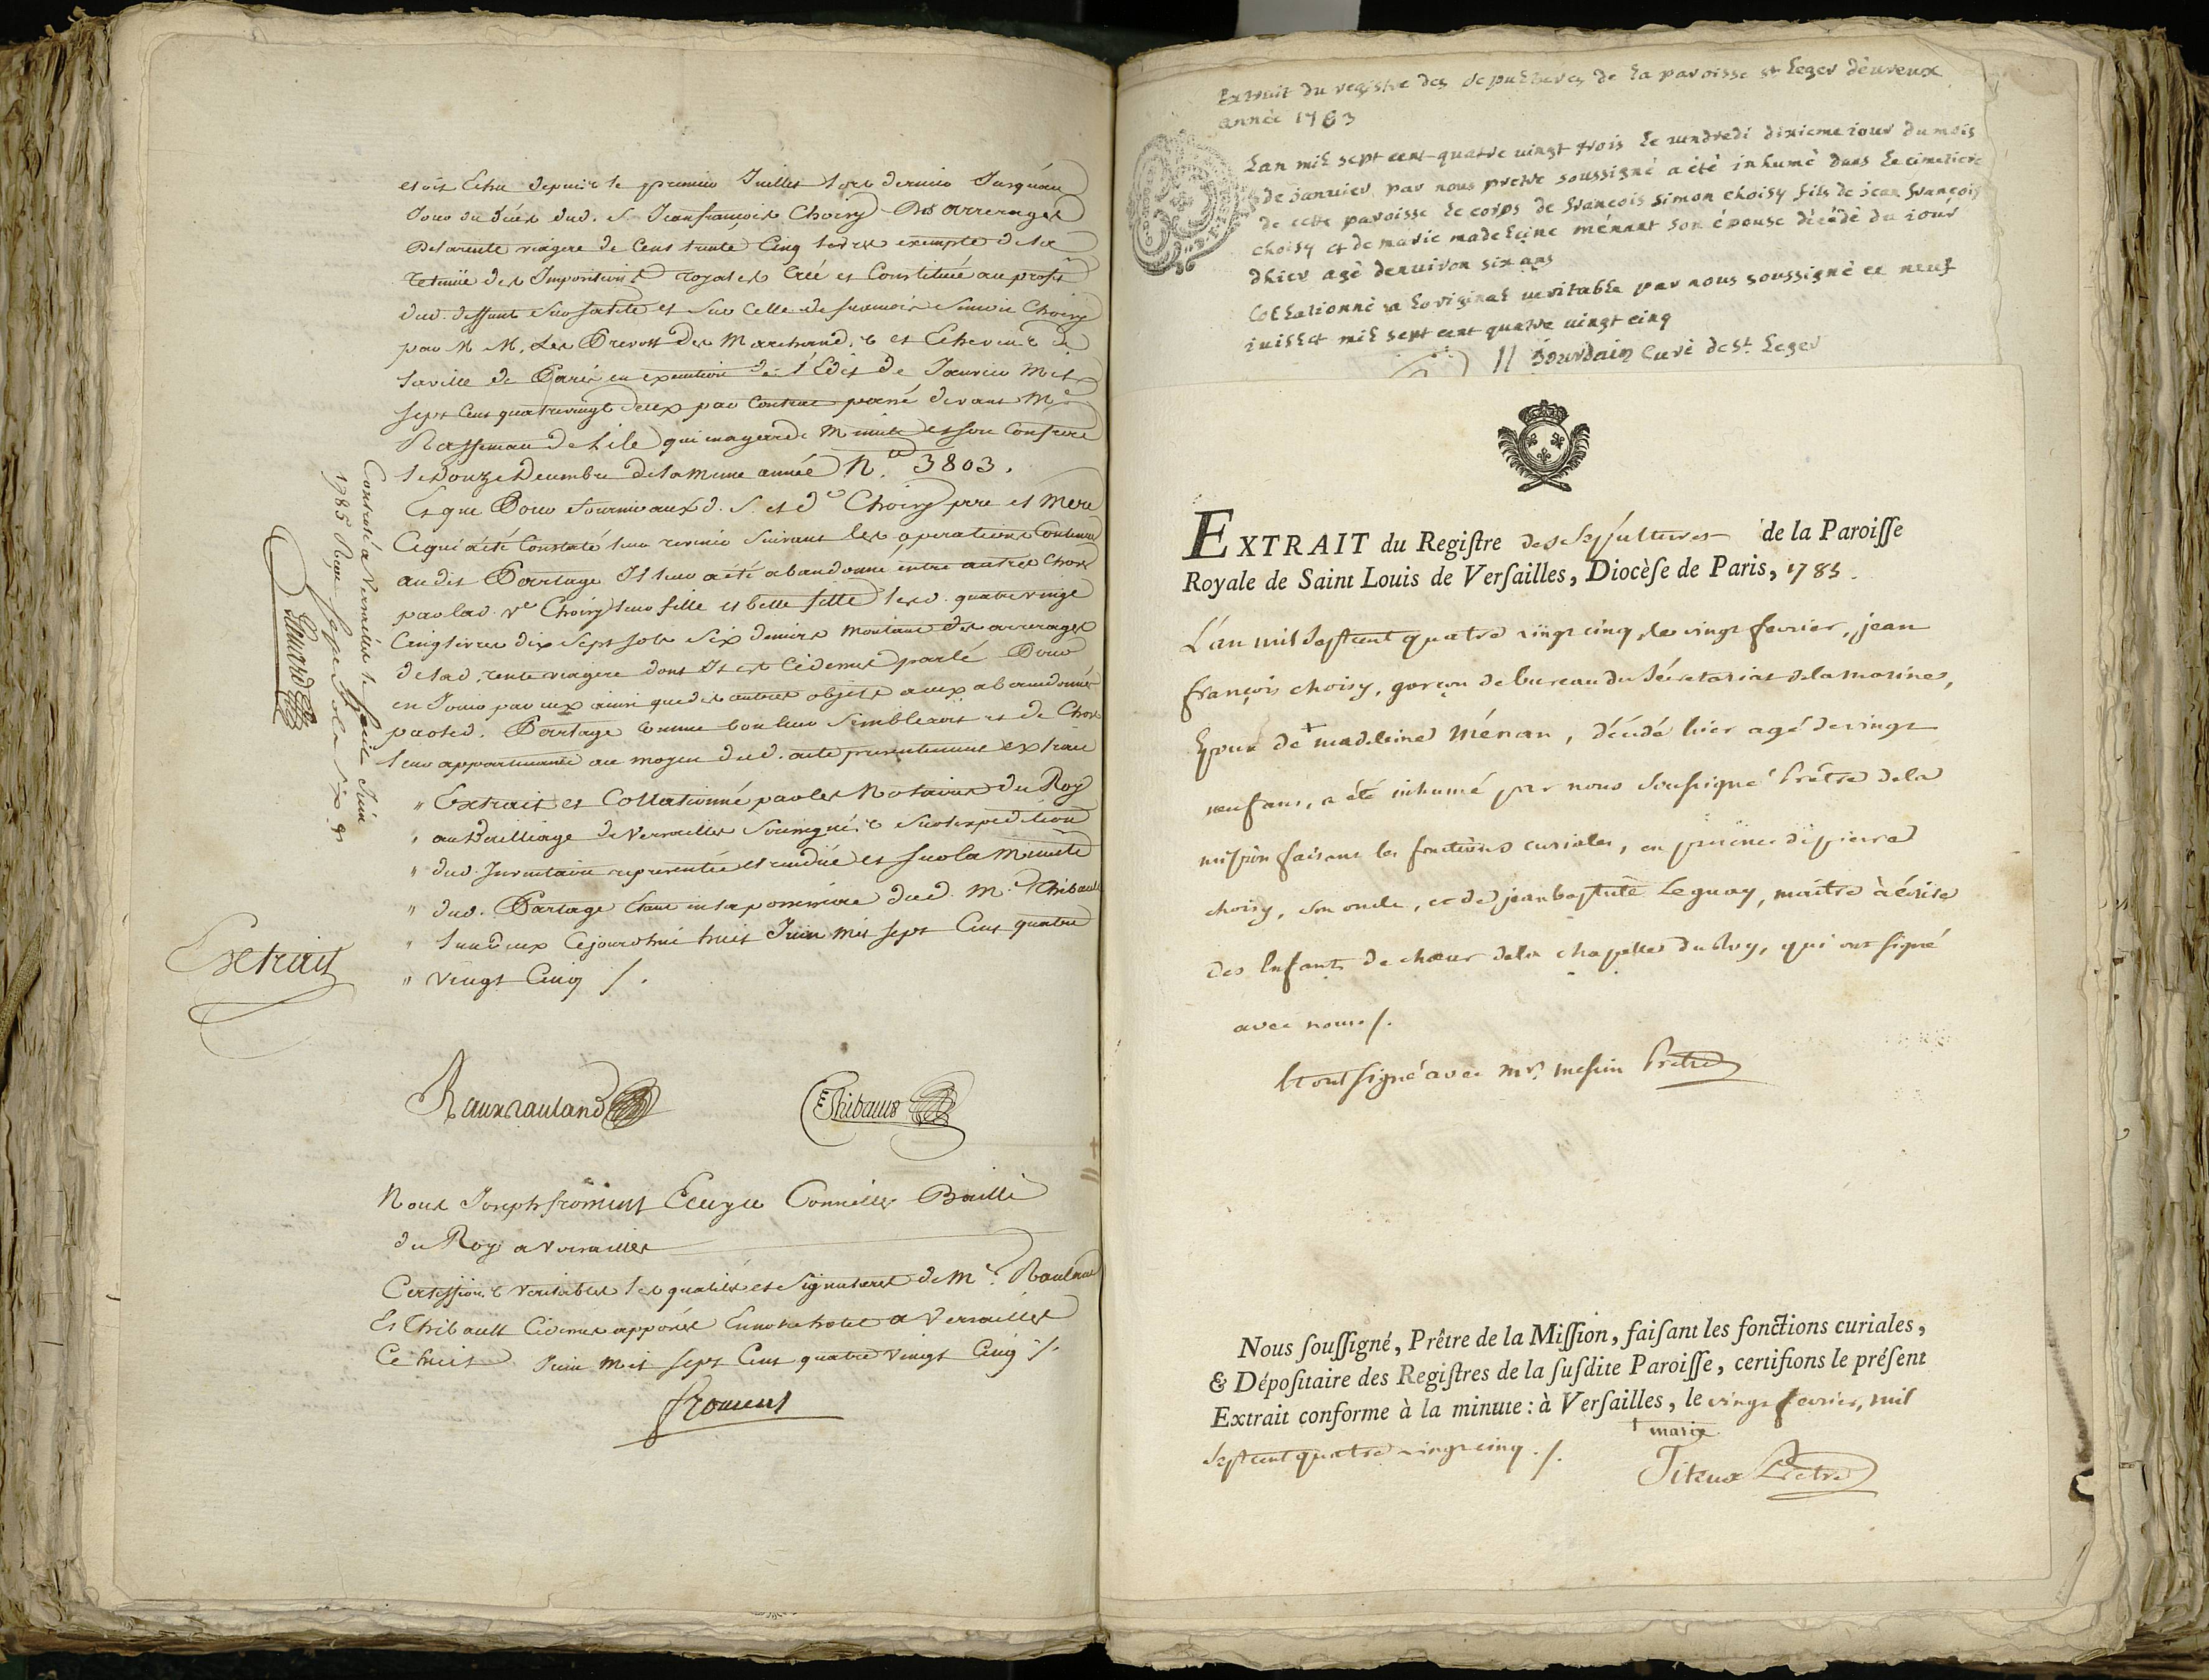 etoit Echu depuis le premier Juillet lors dernier Jusqu'au
Jour du décès dud. S. Jean françois Choisy Des arrerages
De la rente viagere de Cent trente Cinq livres exempte de la
retenüe des Impositions royales Créé et Constitué au profit
dud. deffunt Sur sa tête et Sur Celle de francois Simon Choisy
par M M. Les Prevost des Marchands et Echevins de
la ville de Paris en execution de l'Edit de Janvier Mil
sept Cent quatrevingt deux par Contrat passé devant Me
Rasseneau de Lile qui en a gardé Minute et son Confrere
le Douze Decembre de la meme année No. 3803.
Et que Pour fournir aux d. S. et de Choisy pere et Mere
Ce qui a été Constaté leur revenir Suivant les operations Contenues
au dit Partage Il leur a été abandonné entre autres Choses
par lad. ve Choisy leur fille et belle fille lesd. quatre vingt
Cinq livres dix Sept Sols Six deniers Montant des arrerages
de lad. rente viagere dont Il est Cidessus parlé Pour
en Jouir par eux ainsi que des autres objets a eux abandonnés
par led. Partage Comme bon leur Sembleroit et de Chose
leur appartenante au moyen dud. acte presentement extrait
" Extrait et Collationné par les Notaires du Roy
" au Bailliage de Versailles Soussignés Sur l'expedition
" dud. Inventaire representée et rendüe et Sur la Minute
" dud. Partage Etant en la possession dud. Me. Thibault
" l'un d'eux Cejourd'hui huit Juin Mil Sept Cent quatre
" vingt Cinq /.
Extrait
Controlé a Versailles le huit Juin
1785 Reçu
Raux Rauland
Thibault
Nous Joseph froment Ecuyer Conseiller Bailli
du Roy a Versailles
Certiffions Veritables les qualités et Signatures de Me. Rauland
Et Thibault Cidessus apposés En notre hotel a Versailles
Ce huit Juin Mil Sept Cent quatre Vingt Cinq /.
froment
Extrait du registre des sepultures de la paroisse st Leger d'évreux
année 1783
Lan mil sept cent quatre vingt trois le vendredi dixieme jour du mois
de janvier par nous pretre soussigné a été inhumé dans le cimetiere
de cette paroisse le corps de françois simon choisy fils de jean françois
choisy et de marie madeleine ménant son épouse décédé du jour
dhier agé denviron six ans
Collationné a l'original veritable par nous soussigné ce neuf
juillet mil sept cent quatre vingt cinq
Jourdain Curé de St. Leger
EXTRAIT du Regiſtre des Sépultures de la Paroiſſe
Royale de Saint Louis de Verſailles, Diocèſe de Paris, 1785.
L'an mil Sept cent quatre vingt cinq, le vingt fevrier, jean
françois choisy, garçon de bureau du Sécretariat de la marine,
Epoux de + madeleine Ménan, décédé hier agé de vingt
neuf ans, a été inhumé par nous Soussigné Prêtre de la
mission faisant les fonctions curiales, en présence de pierre
choisy, son oncle, et de jean baptiste Leguay, maître à écrire
des Enfants de chœur de la chapelle du Roy, qui ont signé
avec nous /.
Et ont Signé avec mr. messin Prêtre
Nous ſouſſigné, Prêtre de la Miſſion, faiſant les fonctions curiales,
& Dépoſitaire des Regiſtres de la ſuſdite Paroiſſe, certifions le préſent
Extrait conforme à la minute : à Verſailles, le vingt fevrier, mil
Sept cent quatre vingt cinq. /.
+ marie
Titeux Prêtre